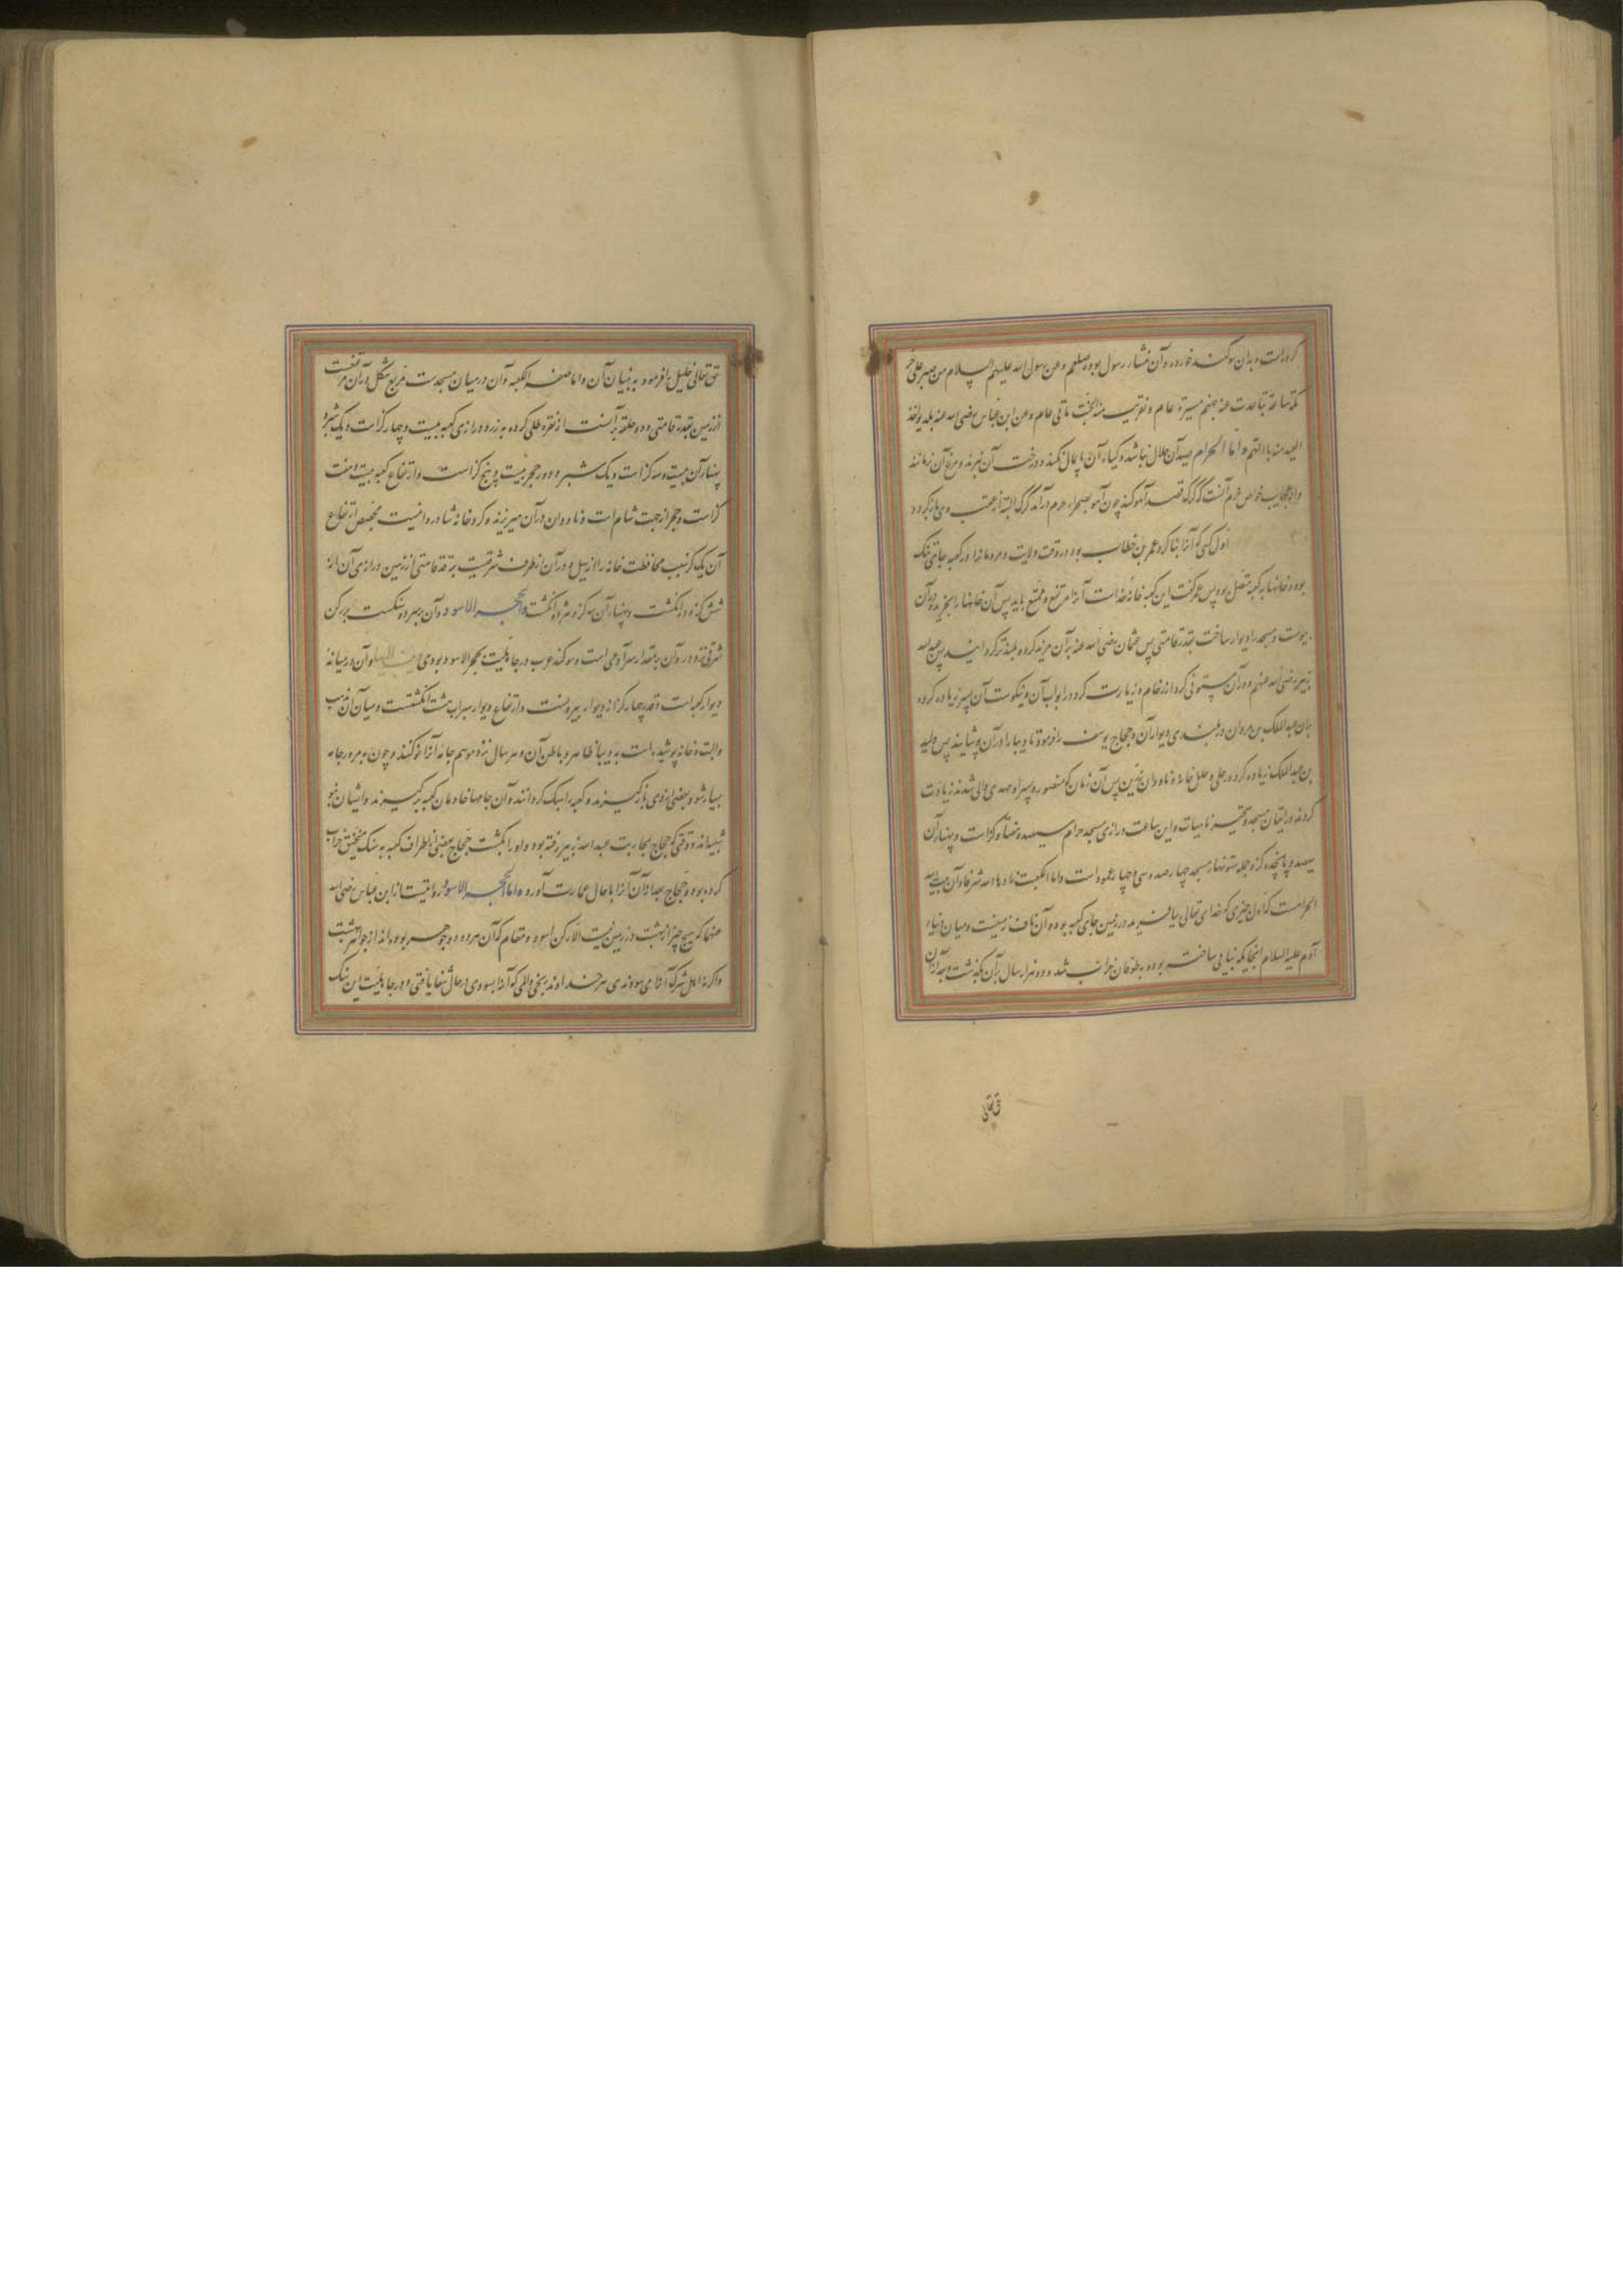 کرده است و بدان سوکند خورده و آن منشاء رسول بوده صلعم و عن رسول الله علیهم السلام من صبر علی حر
مکة ساعة تباعدت عنه جهنم مسیرة عام و تقربت منه الجنة ماتی عام و عن ابن عباس رضی الله عنه
و اما الحرام صید آن حلال نباشد و کیاه آن پایمال نکنند و درخت آن نبرند و مرغ آن نرمانند
و از عجایب خواص حرم آنست که کرک قصد آهو کند چون آهو بصحراء حرم درآید کرک البته از عقب وی بازکردد
اول کسی که آنرا بنا کرد عمر بن خطاب بود در وقت ولایت و مردمانرا در کعبه جایی تنک
بوده و خانها به کعبه متصل بود پس عمر کفت این کعبه خانه خداست آنرا مرتفع و باید پس آن خانها را بخرید و در آن
پیوست و مسجد را دیوار ساخت بقدر قامتی پس عثمان رضی الله عنه بر آن مزید کرده بلندتر کردانید پس عبدالله
زبیر رضی الله عنهم در آن ستونی کرد از رخام و زیارت کرد در ابواب آن و نیکوست آن پس زیاده کرده
عبد الملک بن مروان در بلندی دیوار آن و حجاج یوسف را فرموده تا دیبا را در آن پوشانیدند پس ولید
بن عبد الملک زیاده کرده در حلی و حلل خانه و ناودان زرین پس آن زمان که منصور و پسر او مهدی والی شدند زیادت
کردند در اتقان مسجد و این ساعت درازی مسجد حرام سیصد و هفتاد کز است و پهنا آن
سیصد و پانچده کز و جمله ستونهاء مسجد چهار صد و سی و چهار عمود است و اما الکعبة زادها الله شرفا و آن بیت الله
الحرامست که اول چیزی که خدای تعالی بیافرید در زمین جای کعبه بوده و آن ناف زمینست و میان دنیا
آدم علیه السلام انجایکه بنایی ساخت بوده بطوفان خراب شد و دو هزار سال بر آن بکذشت و بعد از آن
حق تعالی
حق تعالی خلیل را فرمود به بنیان آن و اما صفه الکعبه و آن در میان مسجدست مربع شکل و در آن مرتفعست
از زمین بقدر قامتی و دو حلقه بر آنست از نقره طلی کرده به زر و درازی کعبه بیست و چهار کز است و یک شبر و
پهنا آن بیست و سه کز است و یک شبر و دور حجر بیست و پنج کز است و ارتفاع کعبه بیست و هفت
کز است و حجر از جهت شام است و ناودان در آن میریزند و کرد خانه شادروانیست مجصص ارتفاع
آن یک کز بسبب محافظت خانه را از سیل و در آن از طرف شرقیست بر قد قامتی از زمین درازی آن از
شش کز و ده انکشت و پهنا آن سه کز و هژده انکشت و الحجر الاسود و آن بر سر دو سنکست بر رکن
شرقی نزد در و آن بمقدار سر آدمی است و سوکند عرب در جاهلیت بحجر الاسود بودی و آن در میانه
دیوار کعبه است و قدر چهار کز از دیوار بیرونست و ارتفاع دیوار میزاب هشت انکشتست و میان آن مذهب
و البته خانه پوشیده است به دیبا ظاهر و باطن آن و هر سال نزد موسم جامه آنرا نو کنند و چون به مرور جامه
بسیار شود بعضی از وی بازکیرند و کعبه را سبک کردانند و آن جامها خادمان کعبه برکیرند و ایشان بنو
شیبیانند و وقتی که حجاج بمحاربت عبد الله زبیر رفته بود و او را بکشت حجاج بعضی از اطراف کعبه به سنک منجنیق خراب
کرده بود و حجاج بعد از آن آنرا با حال عمارت آورد و اما الحجر الاسود روایتست از ابن عباس رضی الله
عنهما که هیچ چیز از بهشت در زمین نیست الا رکن اسود و مقام که آن هر دو دو جوهر بوده اند از جواهر بهشت
و اکر نه اهل شرک آنرا می سودندی هر خداوند رنجی و المی که آنرا بسودی در حال شفا یافتی و در جاهلیت این سنک